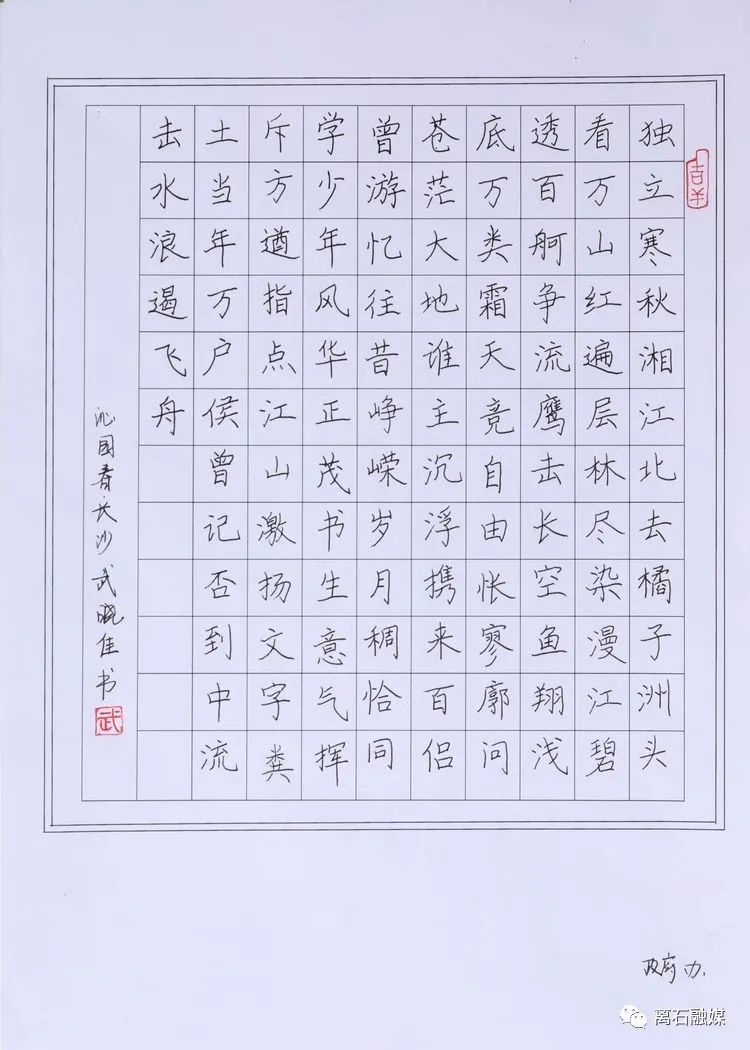 吉羊
独立寒秋湘江北去橘子洲头
看万山红遍层林尽染漫江碧
透百舸争流鹰击长空鱼翔浅
底万类霜天竞自由怅寥廓问
苍茫大地谁主沉浮携来百侣
曾游忆往昔峥嵘岁月稠恰同
学少年风华正茂书生意气挥
斥方遒指点江山激扬文字粪
土当年万户侯曾记否到中流
击水浪遏飞舟
沁园春·长沙武晓佳书
武
政府办.
离石融媒